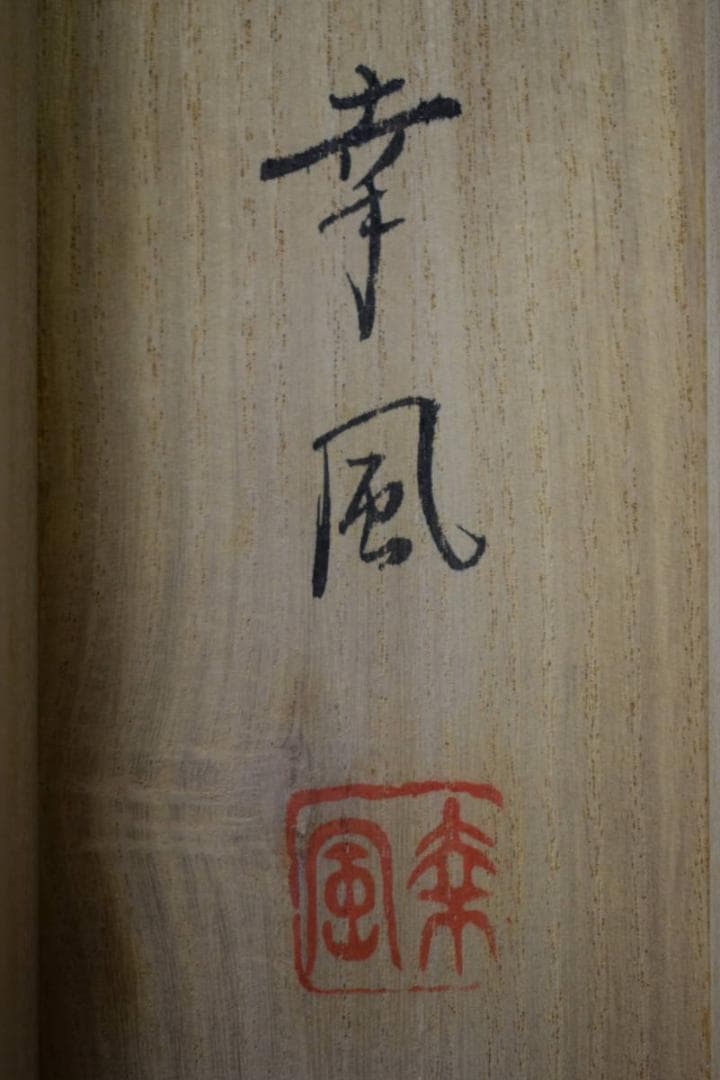 幸風
幸風